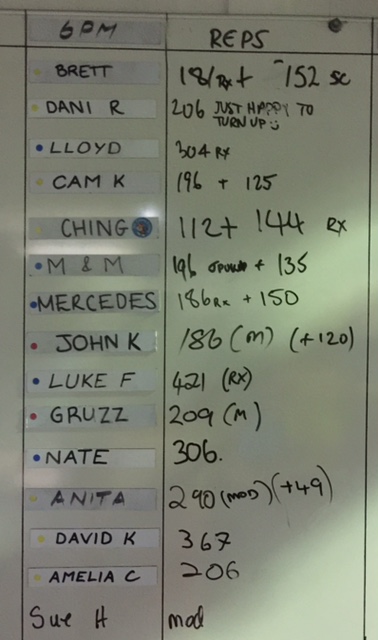 6PM REPS
BRETT 181 Rx + 152 SC
DANI R 206 JUST HAPPY TO
TURN UP
LLOYD 304 RX
CAM K 196 + 125
CHING 112 + 144 RX
M & M 196 + 135
MERCEDES 186 Rx + 150
JOHN K 186 (M) (+120)
LUKE F 421 (RX)
GRUZZ 209 (M)
NATE 306.
ANITA 290 (MOD) (+49)
DAVID K 367
AMELIA C 206
Sue H mod